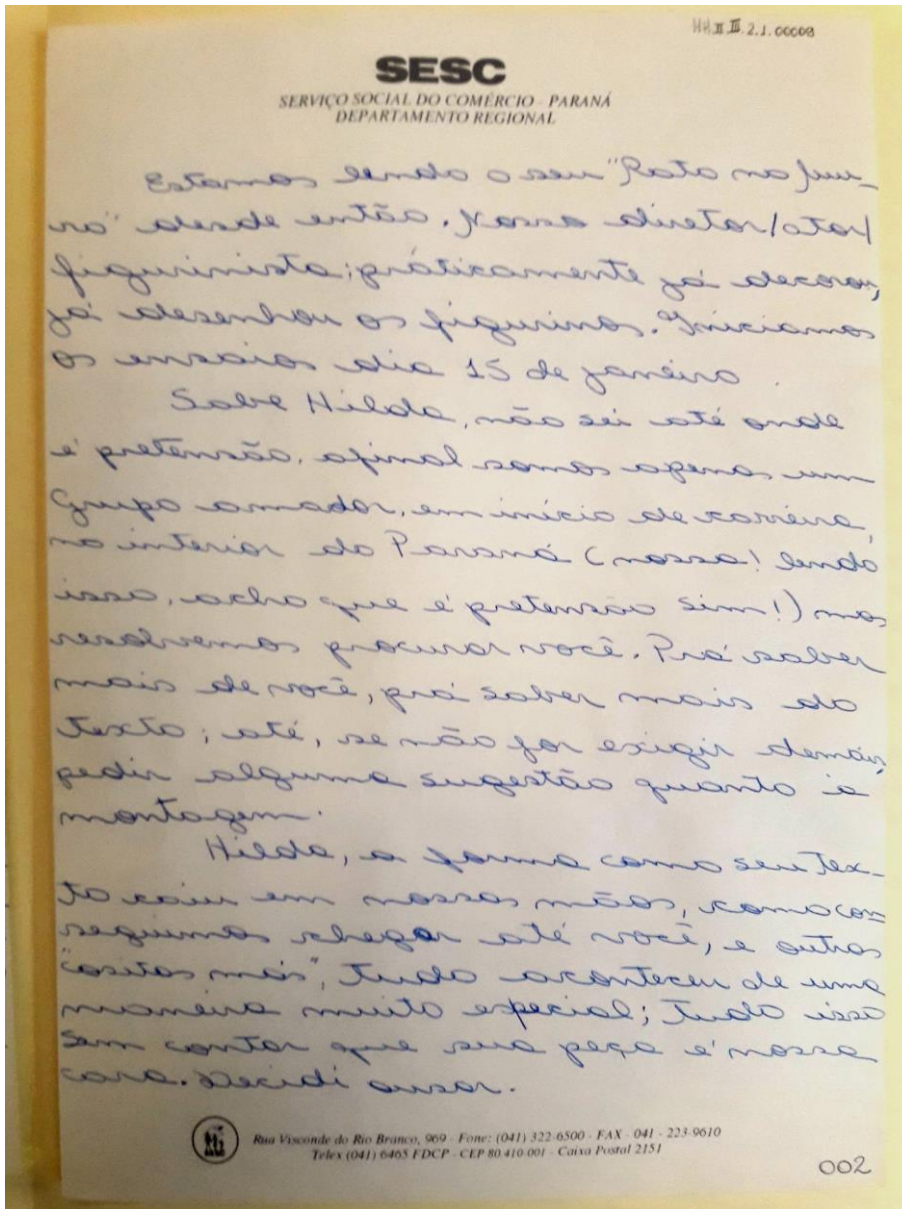 HH II III 2.1.00008
SESC
SERVIÇO SOCIAL DO COMÉRCIO - PARANÁ
DEPARTAMENTO REGIONAL
Estamos lendo o seu "Rato no mu-
ro" desde então. Nosso diretor/ator/
figurinista; práticamente já decorou,
já desenhou os figurinos. Iniciamos
os ensaios dia 15 de janeiro.
Sabe Hilda, não sei até onde
é pretensão, afinal somos apenas um
Grupo amador, em início de carreira,
no interior do Paraná (nossa! lendo
isso, acho que é pretensão sim!) mas
resolvemos procurar você. Prá saber
mais de você, prá saber mais do
texto; até, se não for exigir demais,
pedir alguma sugestão quanto a
montagem.
Hilda, a forma como seu tex-
to caiu em nossas mãos, como con
seguimos chegar até você, e outras
"cositas más", tudo aconteceu de uma
maneira muito especial; tudo isso
sem contar que sua peça é nossa
cara. Decidi ousar.
Rua Visconde do Rio Branco, 969 - Fone: (041) 322-6500 - FAX - 041 - 223-9610
Telex (041) 6465 FDCP - CEP 80.410-001 - Caixa Postal 2151
002